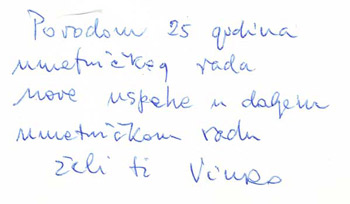 Povodom 25 godina
umetničkog rada
nove uspehe u daljem
umetničkom radu
želi ti Vinko